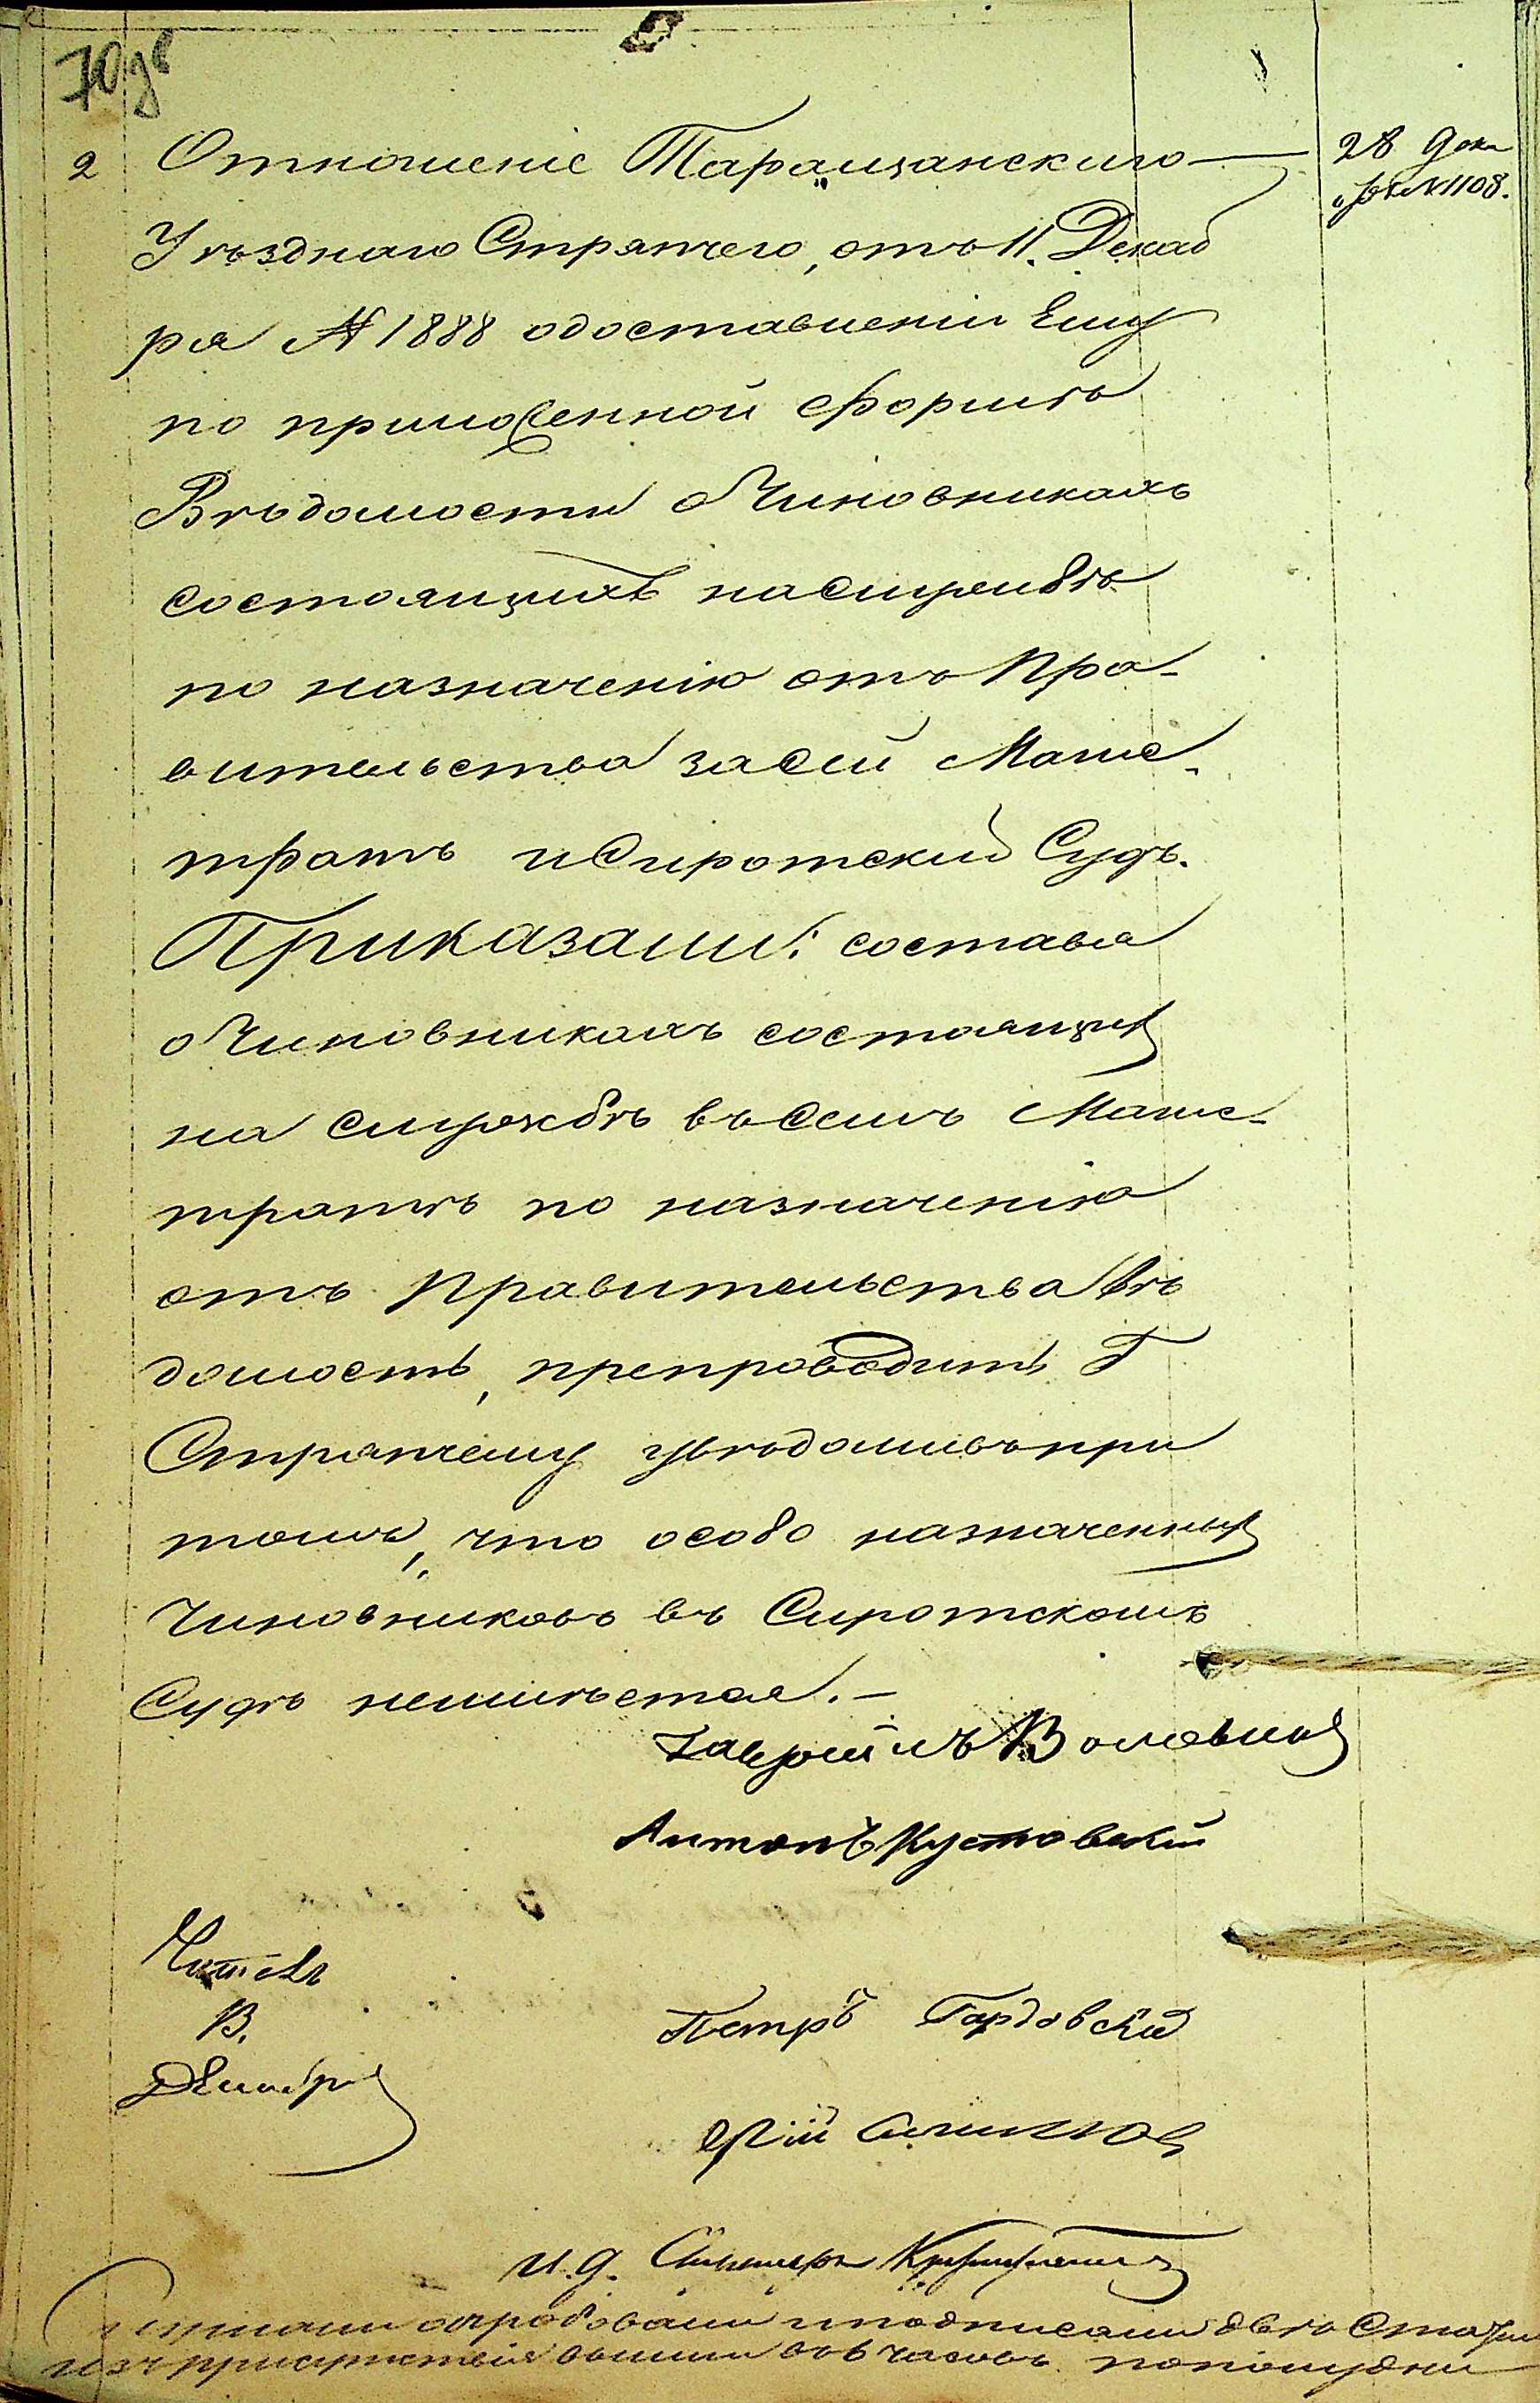 70 об
2 Отношеніе Таращанскаго
28 Дека
№ 1108.
Уѣзднаго Стряпчего, отъ 11. Декаб
ря № 1888 о доставленіи Ему
по приложенной формѣ
Вѣдомости о Чиновникахъ
состоящихъ на службѣ
по назначенію отъ Пра-
вительства за сей Магис-
тратъ и Сиротскій Судъ.
Приказали: составя
о Чиновникахъ состоящихъ
на службѣ въ семъ Магис-
тратѣ по назначенію
отъ Правительства вѣ
домость, препроводить Г
Стряпчему увѣдомивъ при
томъ, что особо назначенныхъ
Чиновниковъ въ Сиротскомъ
Судѣ неимѣется. –
Гавріилъ
Антонъ Кустовскій
Читалъ
В.
Петръ Гардовскій
И. д.
Журналъ и подписали двѣ Статьи
изъ присутствія вышли въ 6 часовъ пополудни